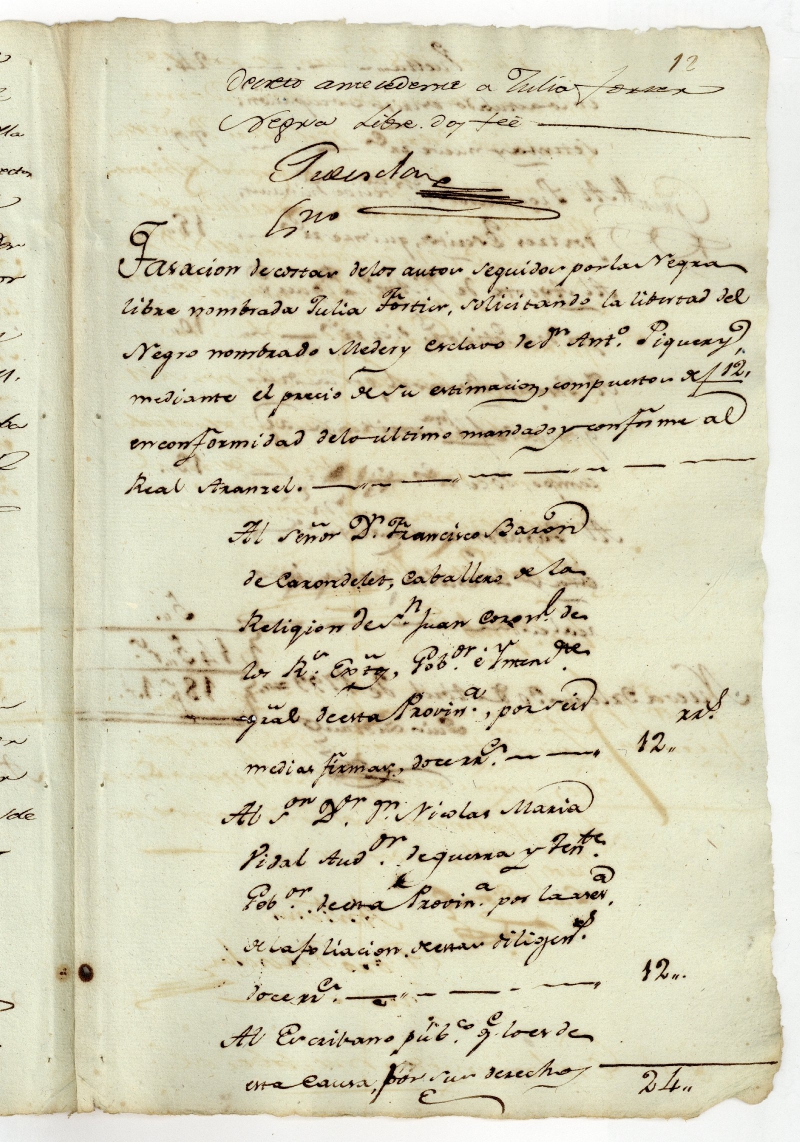 12
Decreto antecedente a Julia Forsier
Negra Libre. doy feé
Quesda
Esno
Tasacion de costas de los autos seguidos por la Negra
libre nombrada Julia Fortier, solicitando la libertad del
Negro nombrado Medery esclavo de Dn. Anto. Piquery
mediante el precio de su estimacion, compuestos de f 12,,
en conformidad de lo último mandado y confñme al
Real Aranzel.
Al señor Dn. Francisco Baron
de Carondelet, Caballero de la
Religion de Sn. Juan Coronl. de
los Rs. Extos, Gobor. é Yntende.
gral de esta Provina., por seis
rrs.
medias firmas, doce rrs. 12,,
Al Sor. Dn. Nicolas Maria
Vidal Audor. de guerra y Tente.
Gobor. de esta Provina. por la ases.a
de la foliacion de estas diligens.
doce rrs. 12,,.
Al Escribano pubco. qe. lo es de
esta Causa, por sus derechos
24,,
lla
ector
or
ba
de